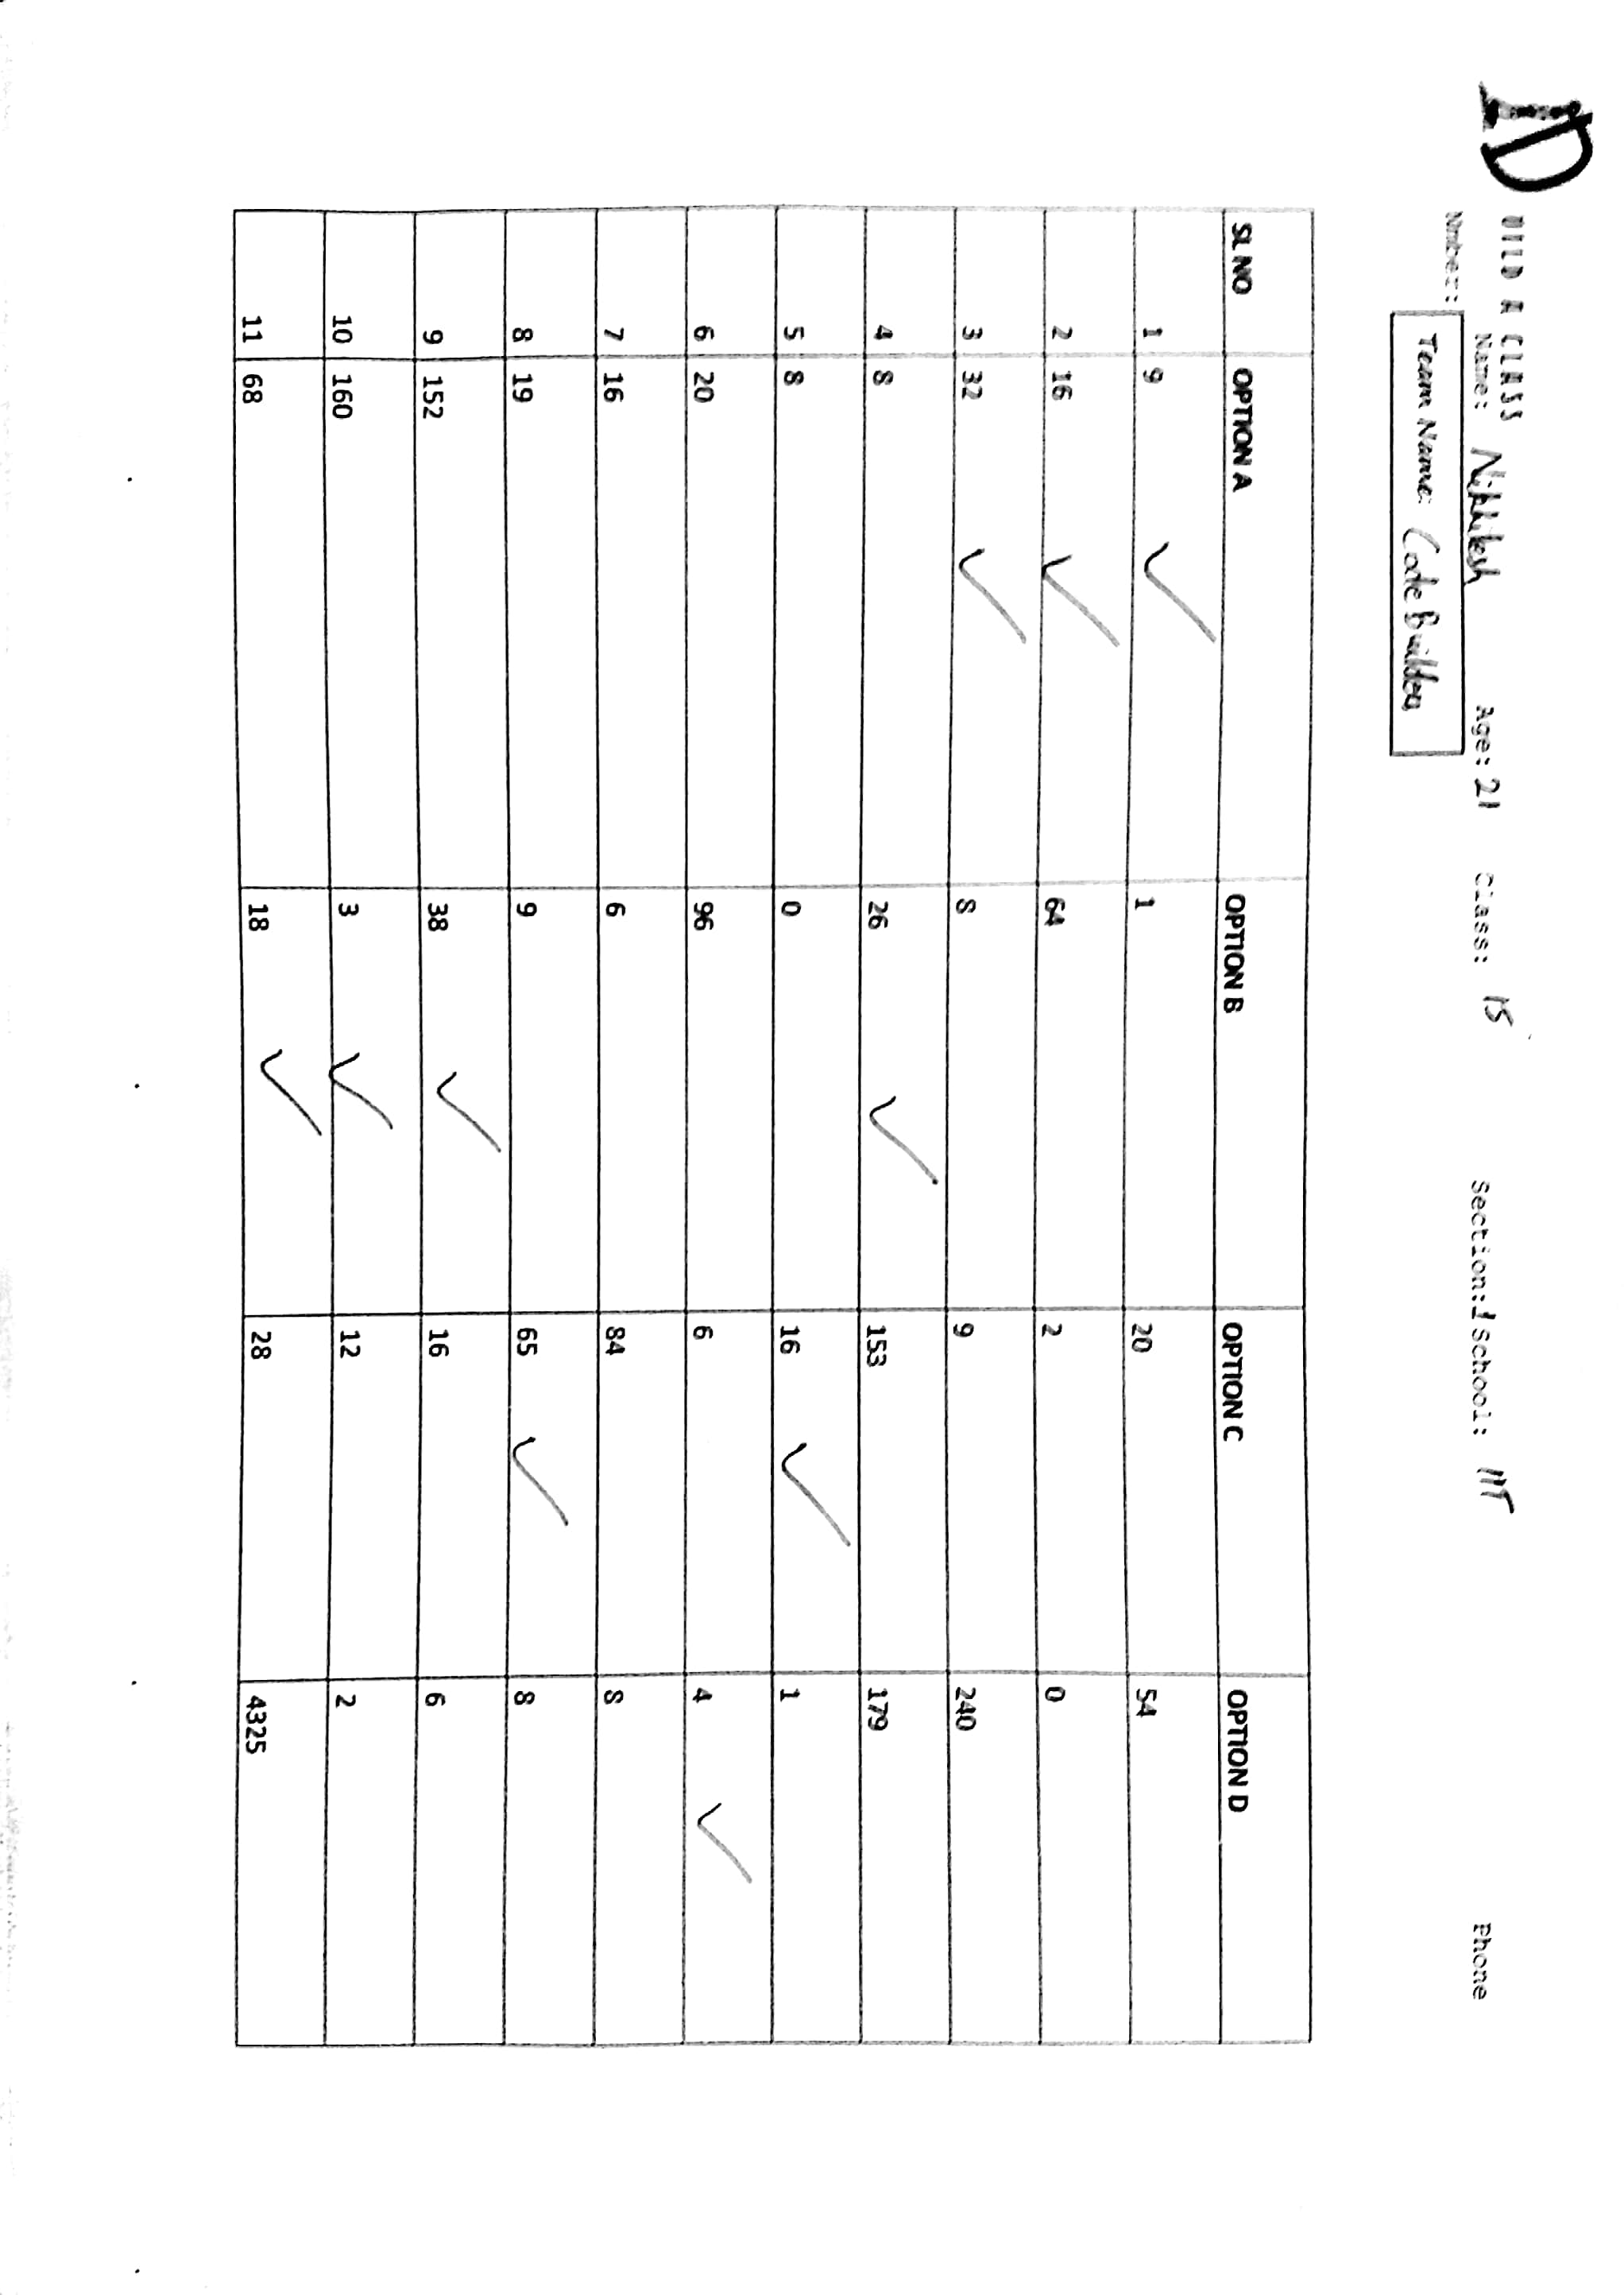 UILD A CLASS
Name: Nikhilesh Age: 21 Class: 15 Section:1 School: IIT Phone
Nmber:
Team Name: Code Builders
SL NO OPTION A OPTION B OPTION C OPTION D
1 9 1 20 54
2 16 64 2 0
3 32 8 9 240
4 8 26 153 179
5 8 0 16 1
6 20 96 6 4
7 16 6 84 8
8 19 9 65 8
9 152 38 16 6
10 160 3 12 2
11 68 18 28 4325